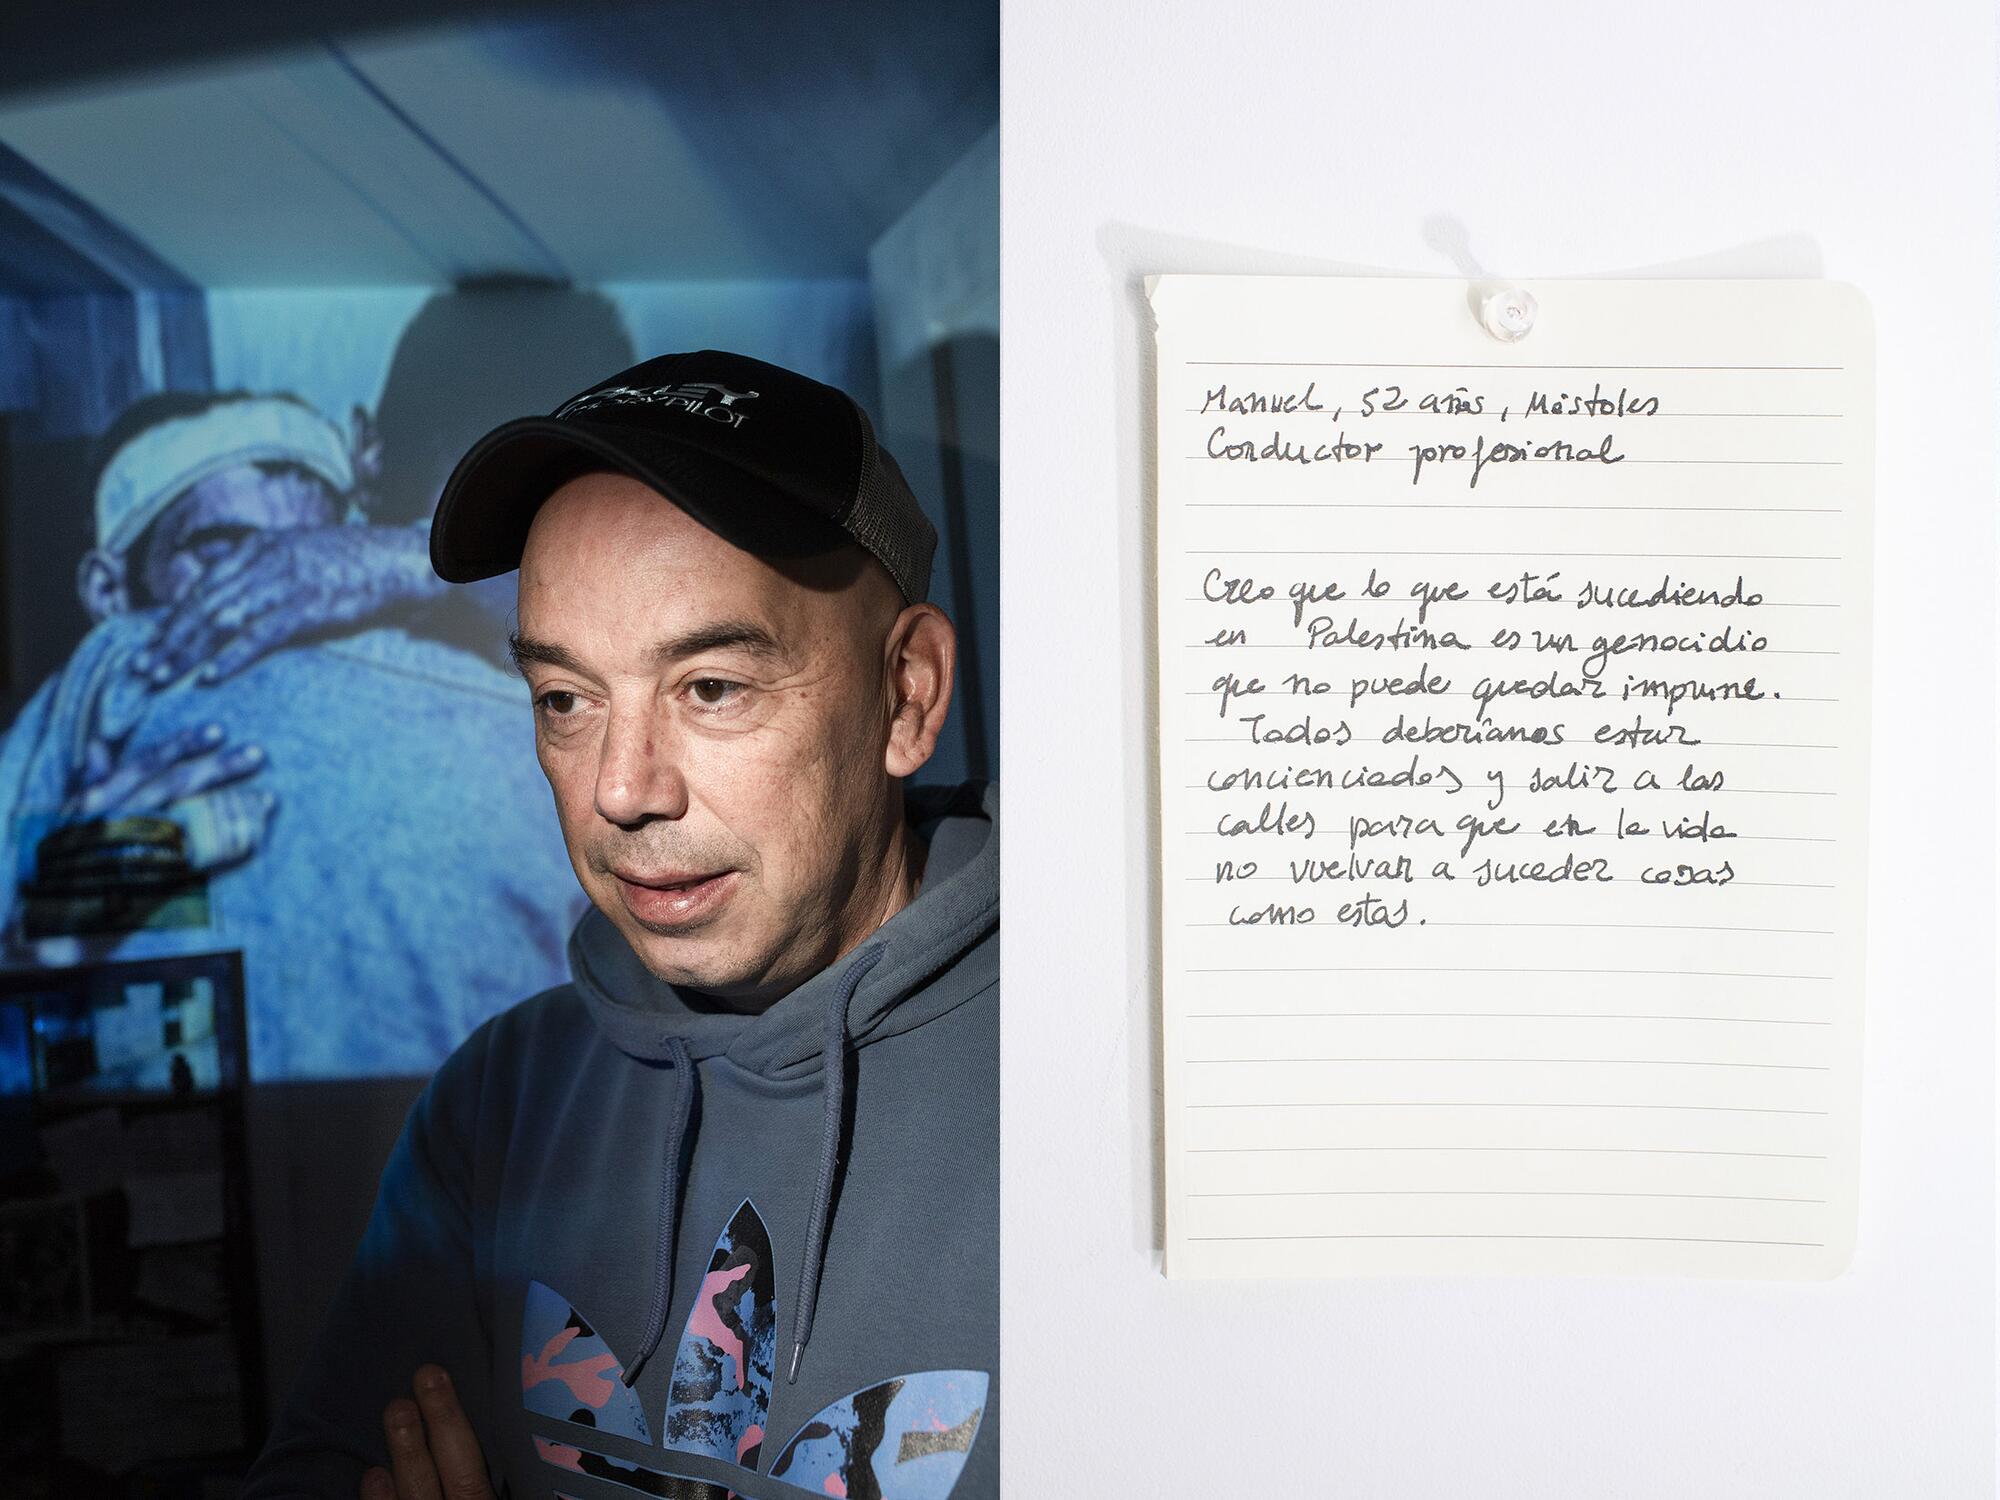 PILOT
Manuel, 52 años, Móstoles
Conductor profesional
Creo que lo que está sucediendo
en Palestina es un genocidio
que no puede quedar impune.
Todos deberíamos estar
concienciados y salir a las
calles para que en la vida
no vuelvan a suceder cosas
como estas.